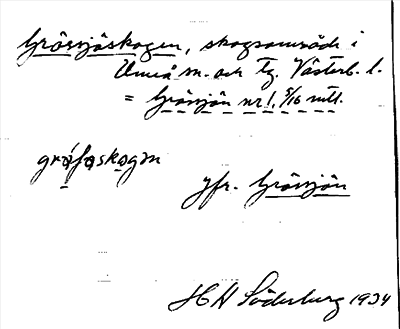 Grössjöskogen, skogsområde i
Umeå sn. och tg. Västerb. l.
= Grössjön nr 1. 5/16 mtl.
gröfaskogen
Jfr. Grössjön
H H Söderburg 1934